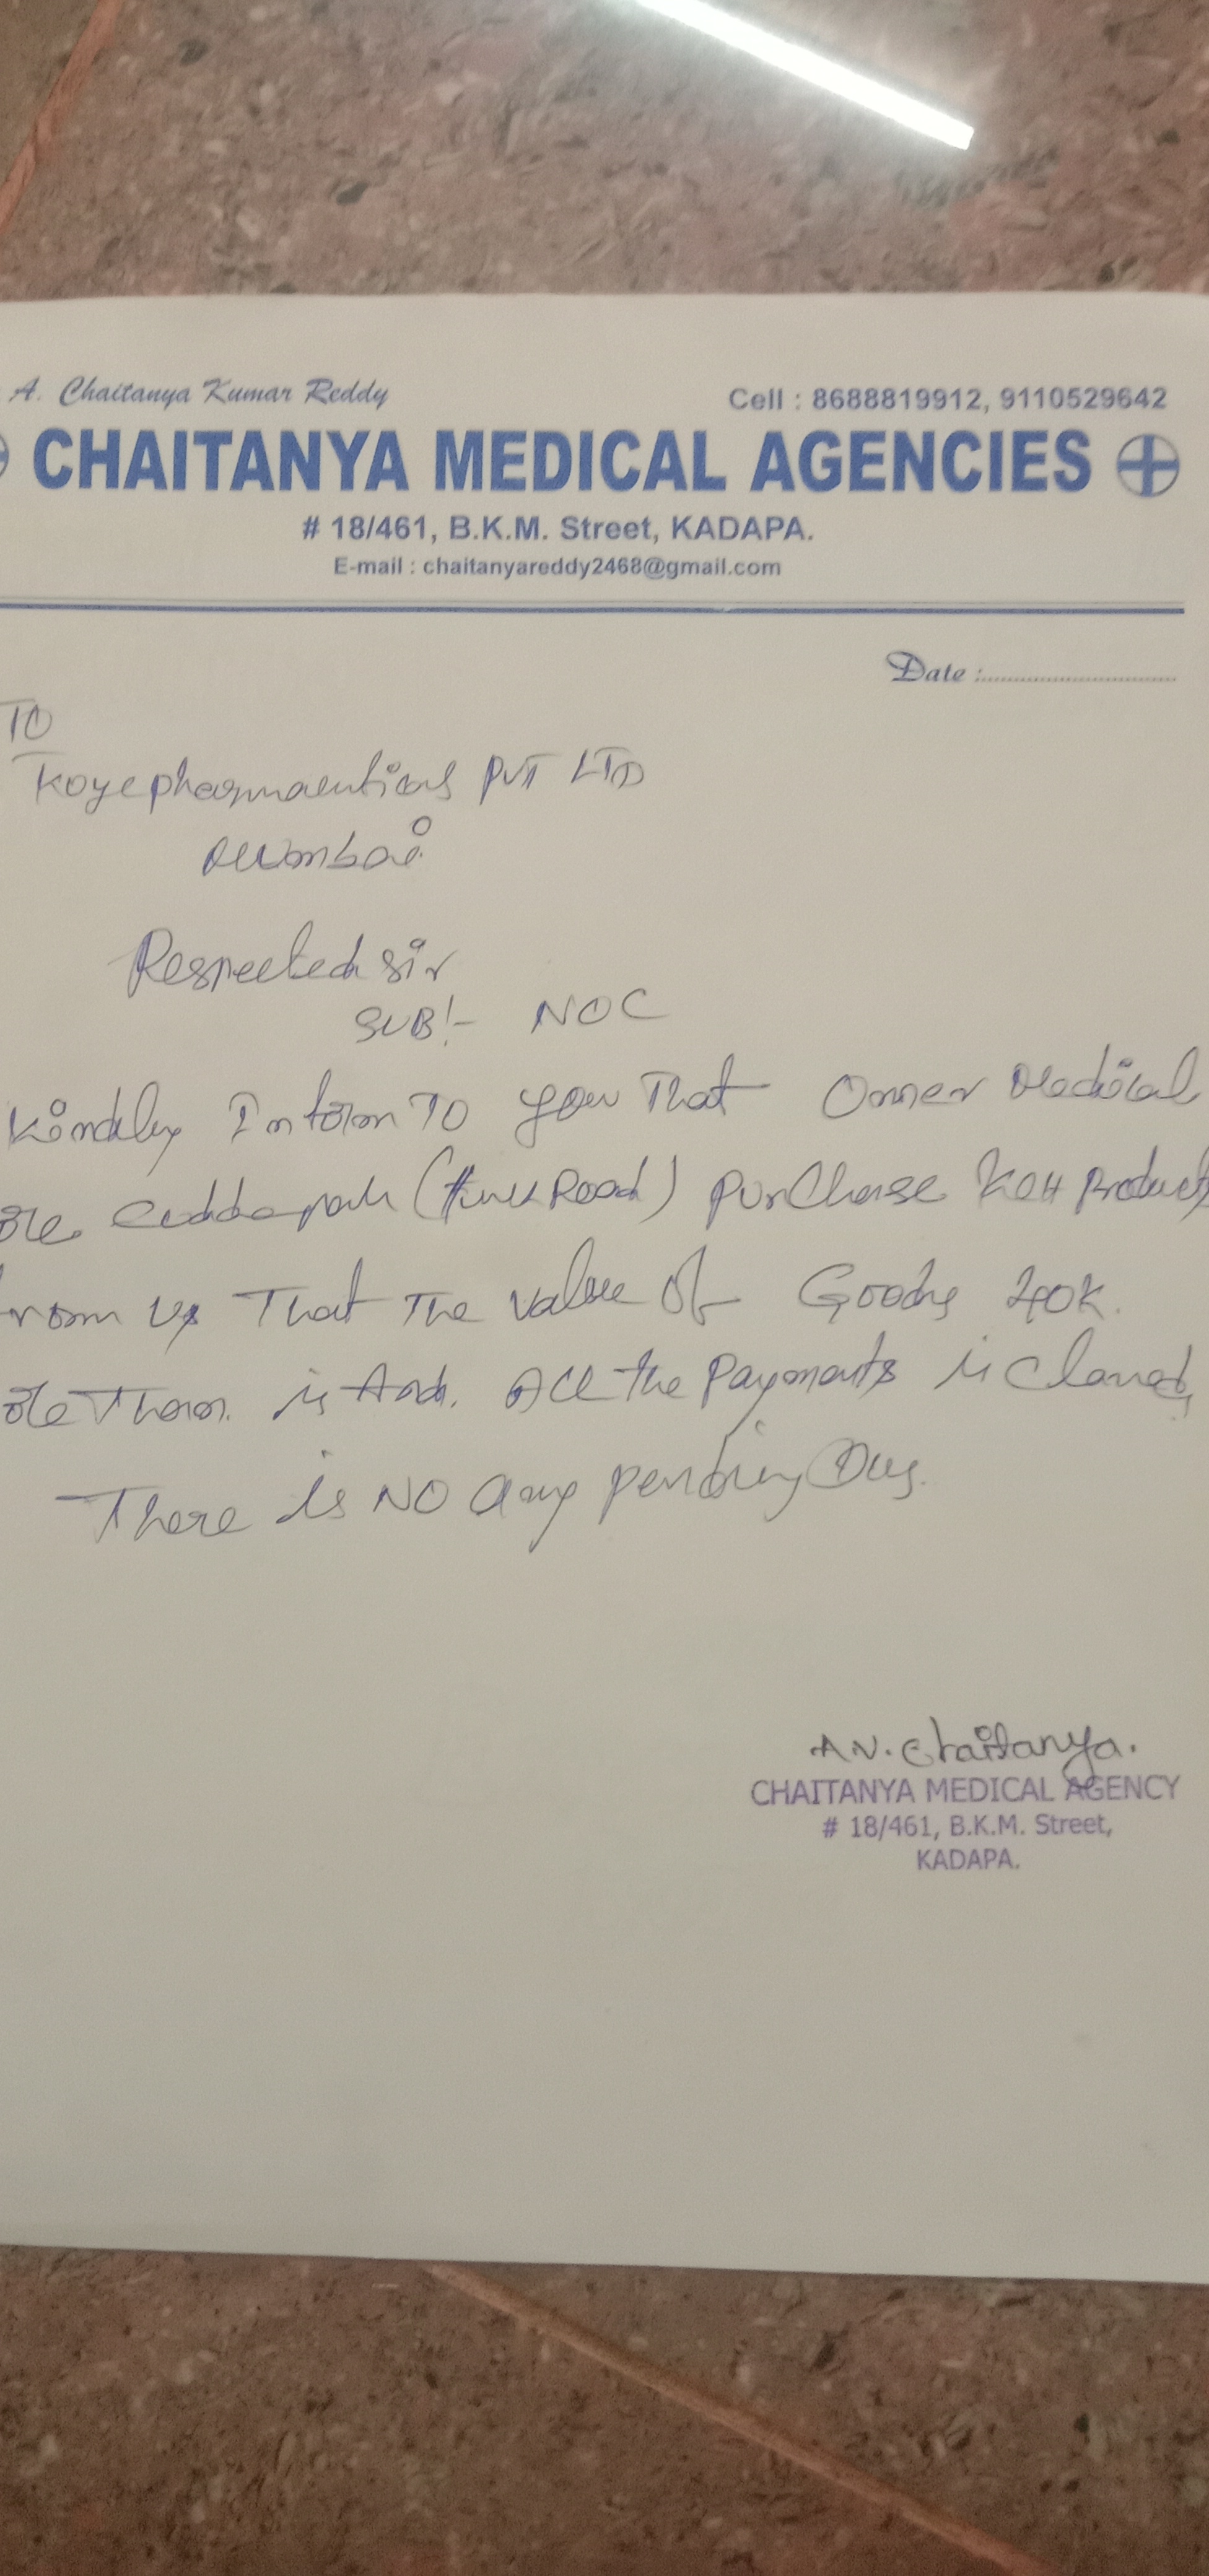 A. Chaitanya Kumar Reddy
Cell : 8688819912, 9110529642
CHAITANYA MEDICAL AGENCIES
# 18/461, B.K.M. Street, KADAPA.
E-mail : chaitanyareddy2468@gmail.com
Date :
TO
Koye pharmaceuticals PVT LTD
Mumbai
Respected sir
SUB:- NOC
Kindly Inform TO you That Medical
Cuddapah ( Road) Purchase Products
rom us That The value of Goods 40K.
is And. All the Payments is
There is NO any pending Dues.
A.N. Chaitanya.
CHAITANYA MEDICAL AGENCY
# 18/461, B.K.M. Street,
KADAPA.